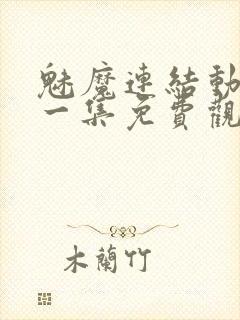 魅魔連結動
一集免費觀
木蘭竹